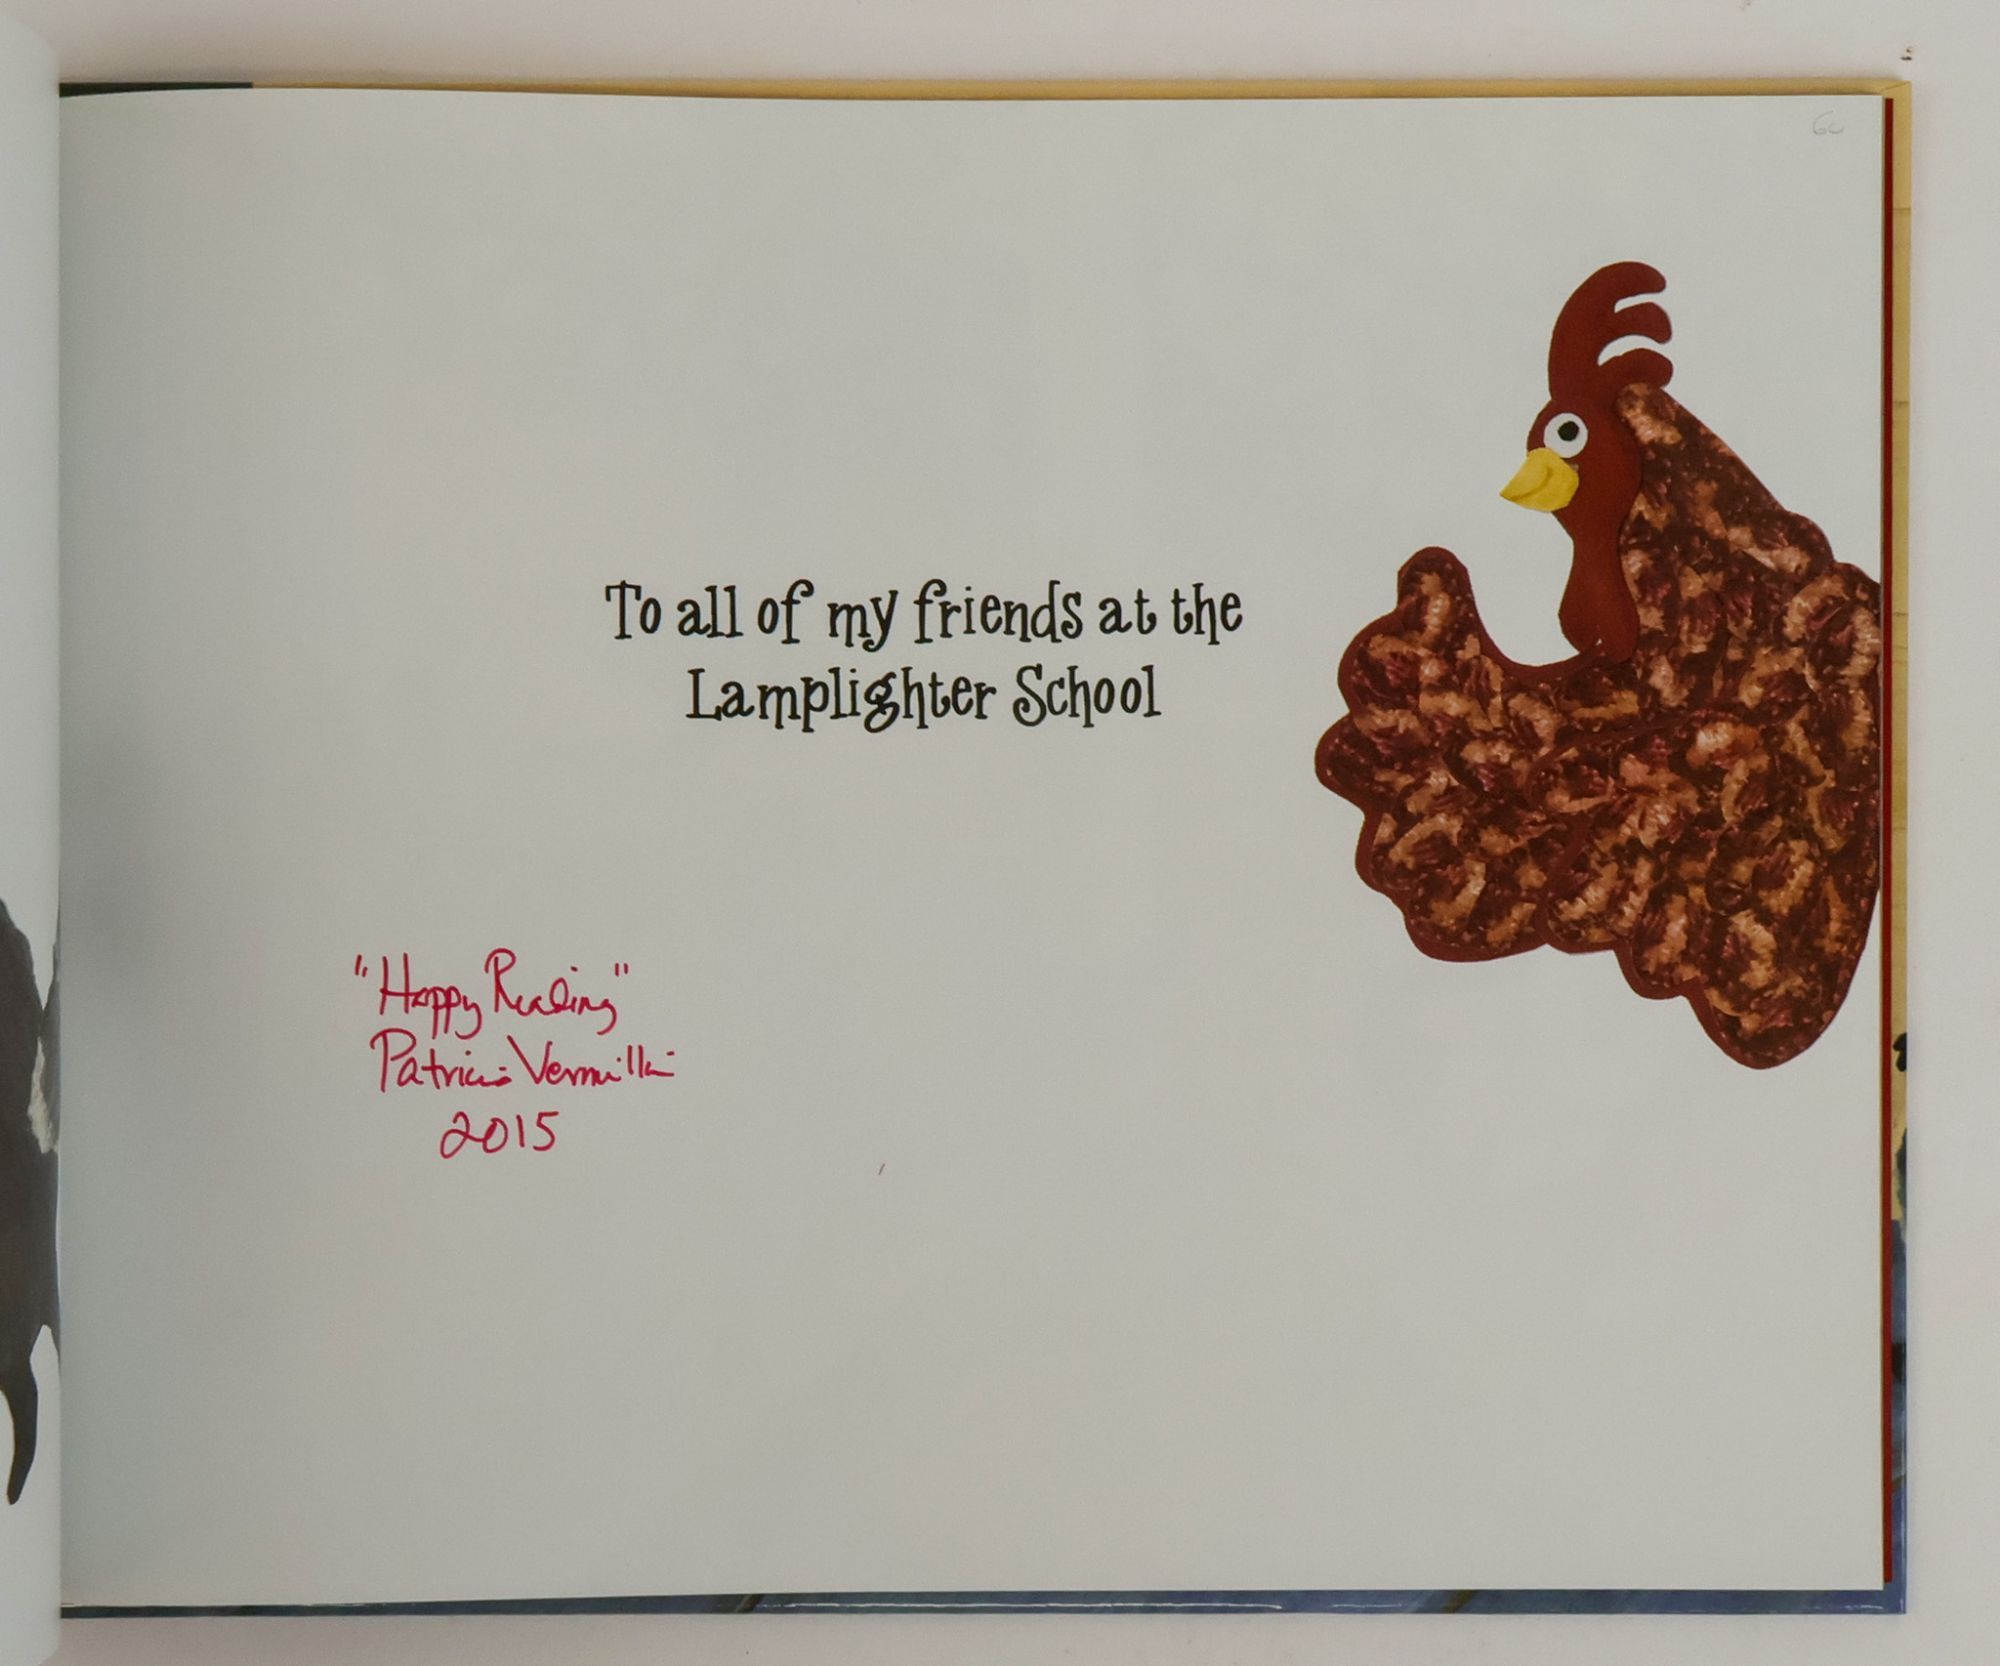 To all of my friends at the
Lamplighter School
"Happy Reading"
Patricia Vermillion
2015